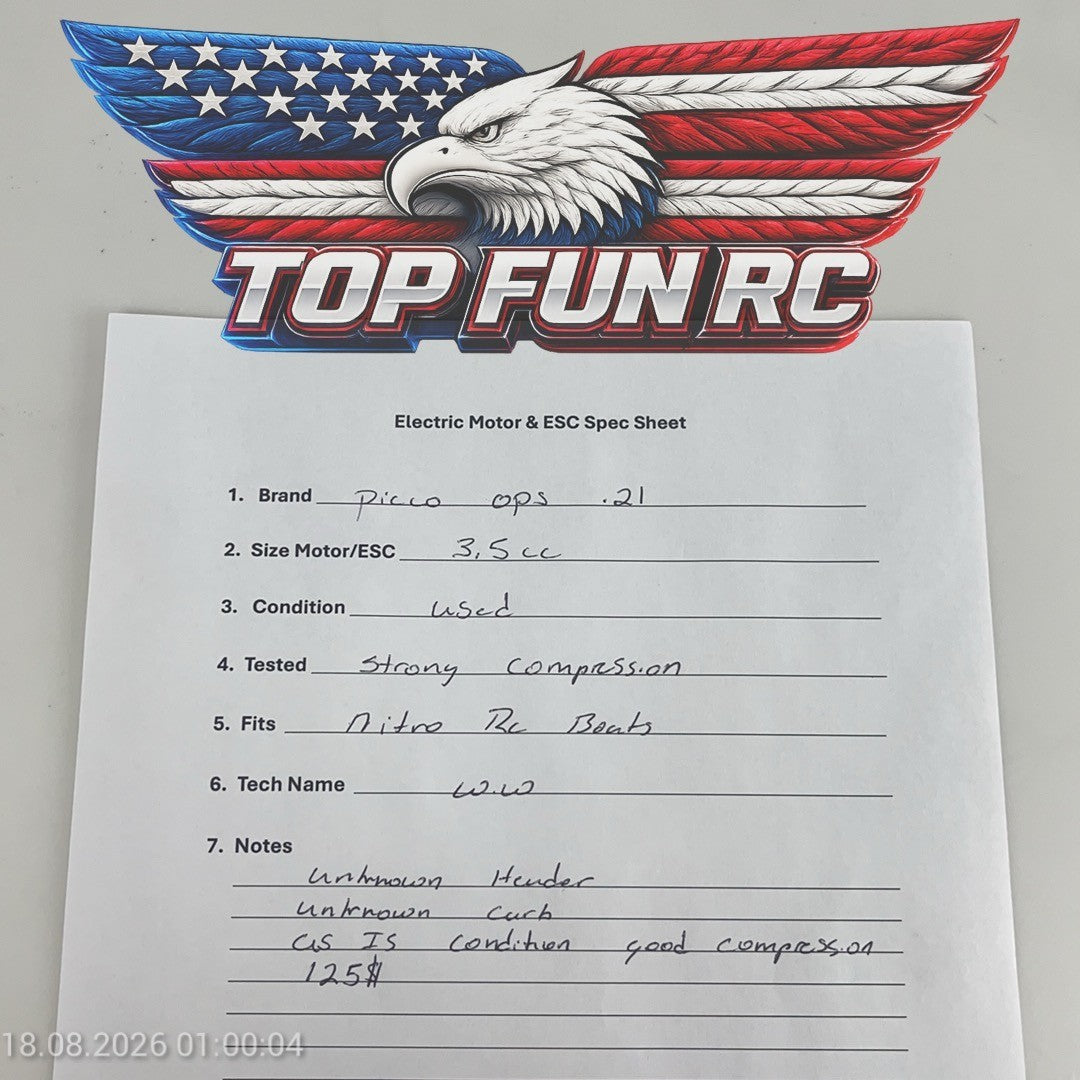 TOP FUN RC
Electric Motor & ESC Spec Sheet
1. Brand Picco ops .21
2. Size Motor/ESC 3.5cc
3. Condition used
4. Tested Strong Compression
5. Fits Nitro Rc Boats
6. Tech Name W.W
7. Notes
unknown Header
unknown Carb
as Is condition good compression
125$
18.08.2026 01:00:04